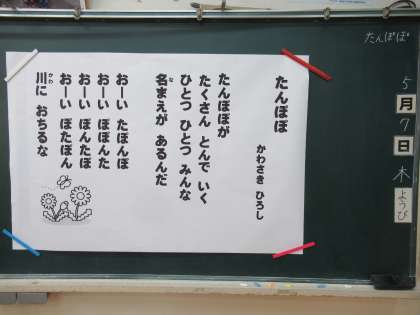 たんぽぽ
かわさき ひろし
たんぽぽが
たくさん とんで いく
ひとつ ひとつ みんな
名まえが あるんだ
な
おーい たぽんぽ
おーい ぽぽんた
おーい ぽんたぽ
おーい ぽたぽん
川に おちるな
かわ
たんぽぽ
5月7日木ようび